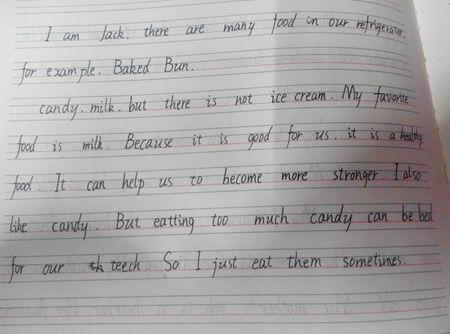 I am Jack. there are many food in our refrigerator.
for example. Baked Bun.
candy. milk. but there is not ice cream. My favorite
food is milk. Because it is good for us. it is a healthy
food. It can help us to become more stronger. I also
like candy. But eatting too much candy can be bed
for our teech. So I just eat them sometimes.